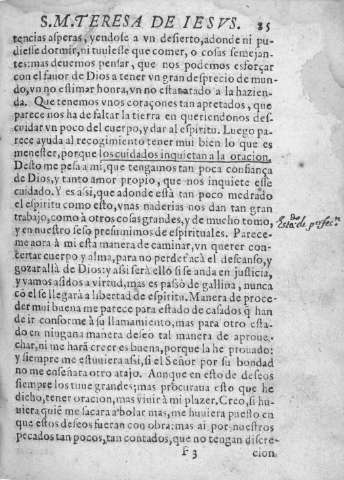 S. M. TERESA DE IESVS. 85
tencias asperas, yendose a vn desierto, adonde ni pu-
diesse dormir, ni tuuiesse que comer, o cosas semejan-
tes: mas deuemos pensar, que nos podemos esforçar
con el fauor de Dios a tener vn gran desprecio de mun-
do, vn no estimar honra, vn no estar atado a la hazien-
da. Que tenemos vnos coraçones tan apretados, que
parece nos ha de faltar la tierra en queriendonos des-
cuidar vn poco del cuerpo, y dar al espiritu. Luego pa-
rece ayuda al recogimiento tener mui bien lo que es
menester, porque los cuidados inquietan a la oracion.
Desto me pesa a mi, que tengamos tan poca confiança
de Dios, y tanto amor propio, que nos inquiete esse
cuidado. Y es assi, que adonde està tan poco medrado
el espiritu como esto, vnas naderias nos dan tan gran
trabajo, como à otros cosas grandes, y de mucho tomo,
y en nuestro seso presumimos de espirituales. Parece-
me aora à mi esta manera de caminar, vn querer con-
certar cuerpo y alma, para no perder acà el descanso, y
gozar allà de Dios: y assi serà ello si se anda en justicia,
y vamos asidos a virtud, mas es passo de gallina, nunca
cō el se llegarà a libertad de espiritu. Manera de proce-
der mui buena me parece para estado de casados q̃ han
de ir conforme à su llamamiento, mas para otro esta-
do en ninguna manera deseo tal manera de aproue-
char, ni me harà creer es buena, porque la he prouado:
y siempre me estuuiera assi, si el Señor por su bondad
no me enseñara otro atajo. Aunque en esto de deseos
siempre los tuue grandes; mas procuraua esto que he
dicho, tener oracion, mas viuir à mi plazer. Creo, si hu-
uiera quiē me sacara a bolar mas, me huuiera puesto en
que estos deseos fueran con obra: mas ai por nuestros
pecados tan pocos, tan contados, que no tengan discre-
F 3 cion
Estado de perfec.n